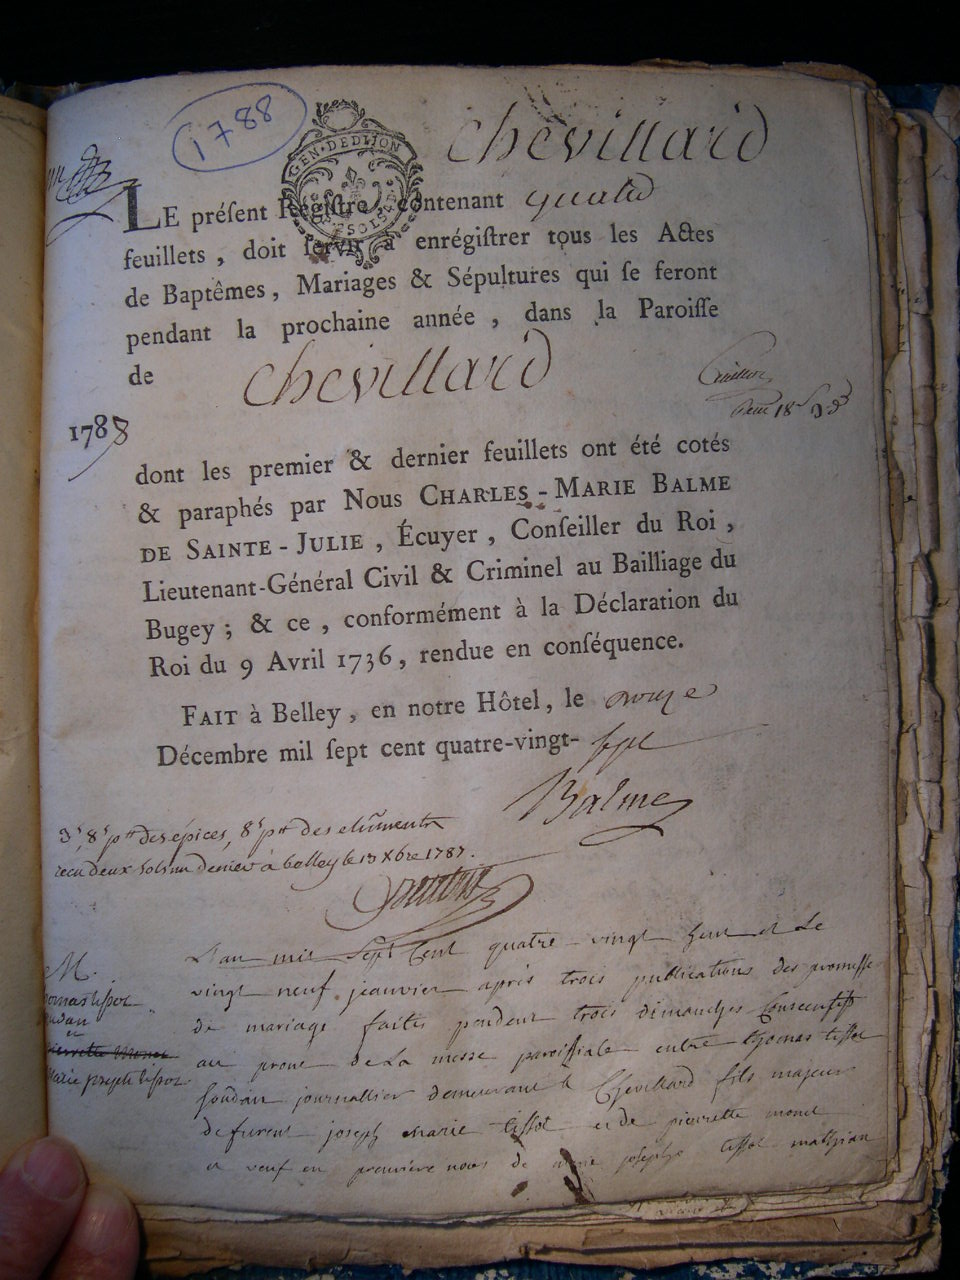 1788
Chevillard
GEN. DE DIJON
LE préſent Regiſtre contenant quatre
feuillets, doit ſervir à enrégiſtrer tous les Actes
de Baptêmes, Mariages & Sépultures qui ſe feront
pendant la prochaine année, dans la Paroiſſe
de Chevillard
1788
dont les premier & dernier feuillets ont été cotés
& paraphés par Nous CHARLES-MARIE BALME
DE SAINTE-JULIE, Écuyer, Conſeiller du Roi,
Lieutenant-Général Civil & Criminel au Bailliage du
Bugey; & ce, conformément à la Déclaration du
Roi du 9 Avril 1736, rendue en conſéquence.
FAIT à Belley, en notre Hôtel, le onze
Décembre mil ſept cent quatre-vingt-ſept
Balme
3s, 8s ptt des épices, 8s ptt des
recu deux sols un denier à belley le 13 Xbre 1787.
L'an mil Sept Cent quatre vingt huit et Le
vingt neuf jeanvier aprés trois publications des promesse
de mariage faites pendent trois dimanches Consecutifs
au prone de La messe paroissiale entre thomas tissot
soudan journallier demeurant à Chevillard fils majeur
de furent joseph marie tissot et de pierrette monet
et veuf en premiere noces de marie josephe tissot
M.
thomas tissot
soudan
et
pierrette Monet
Marie josephe tissot